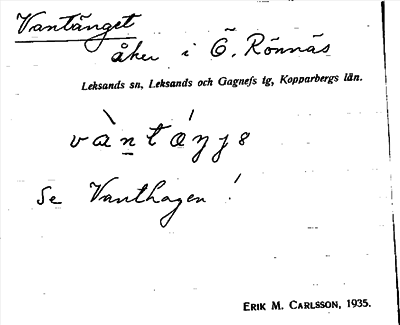 Vantänget
åker i Ö. Rönnäs
Leksands sn, Leksands och Gagnefs tg, Kopparbergs län.
Se Vanthagen!
ERIK M. CARLSSON, 1935.